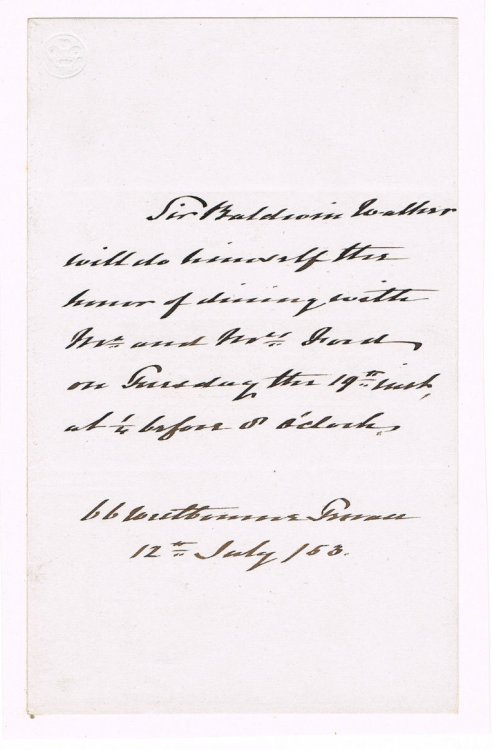 Sir Baldwin Walker
will do himself the
honor of dining with
Mr. and Mrs. Ford,
on Tuesday the 19th inst,
at 1/4 before 8 o'clock,
66 Westbourne Terrace
12th July /53.